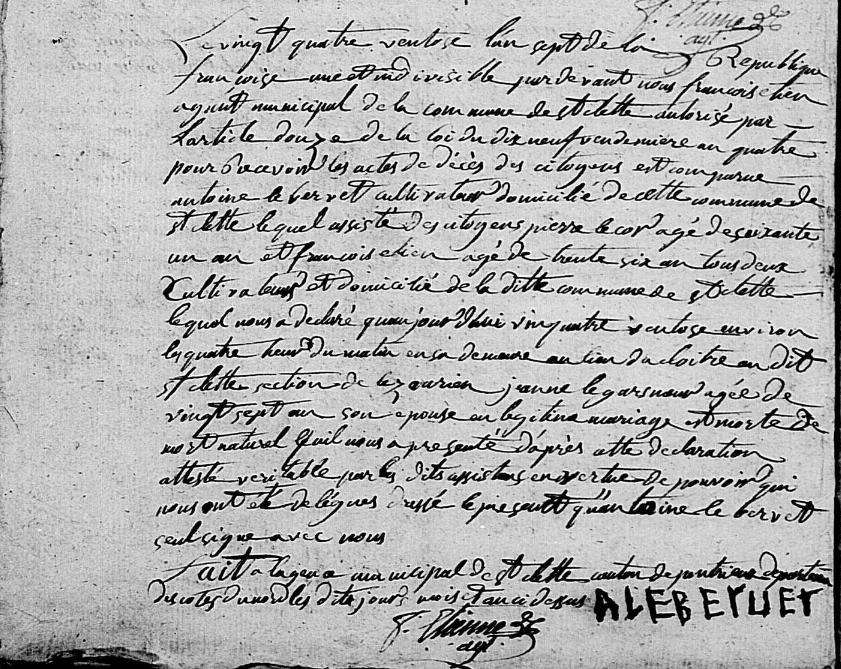 f. Etienne
agt
Le vingt quatre ventose l'an sept de la Republique
francoise une et indivisible par devant nous francois
agent municipal de la commune de st clette autorisé par
larticle douze de la loi du dix neuf vendemiere an quatre
pour Recevoir les actes de décès des citoyens est comparue
antoine le bervet cultivateur domicilié de cette commune de
st clette lequel assisté des citoyens pierre le cor agé de soixante
un an et francois agé de trente six an tous deux
Cultivateurs et domicilié de la ditte commune de st clette
lequel nous a declaré quaujourdhui vingquatre ventose environ
les quatre heur du matin en sa demeure au lieu du cloitre en dit
st clette section de jeanne le gars agée de
vingt sept an son epouse en legitime mariage et morte de
mort naturel quil nous a presenté d'après cette declaration
attesté veritable par les dits assistans en vertue de pouvoir qui
nous ont été delégues dressé le present qu'antoine le bervet
seul signe avec nous
fait a lagence municipal de st clette canton de pontrieux departem
des cotes du nord les dits jours mois et an ci dessus ALEBERUET
f. Etienne
agt